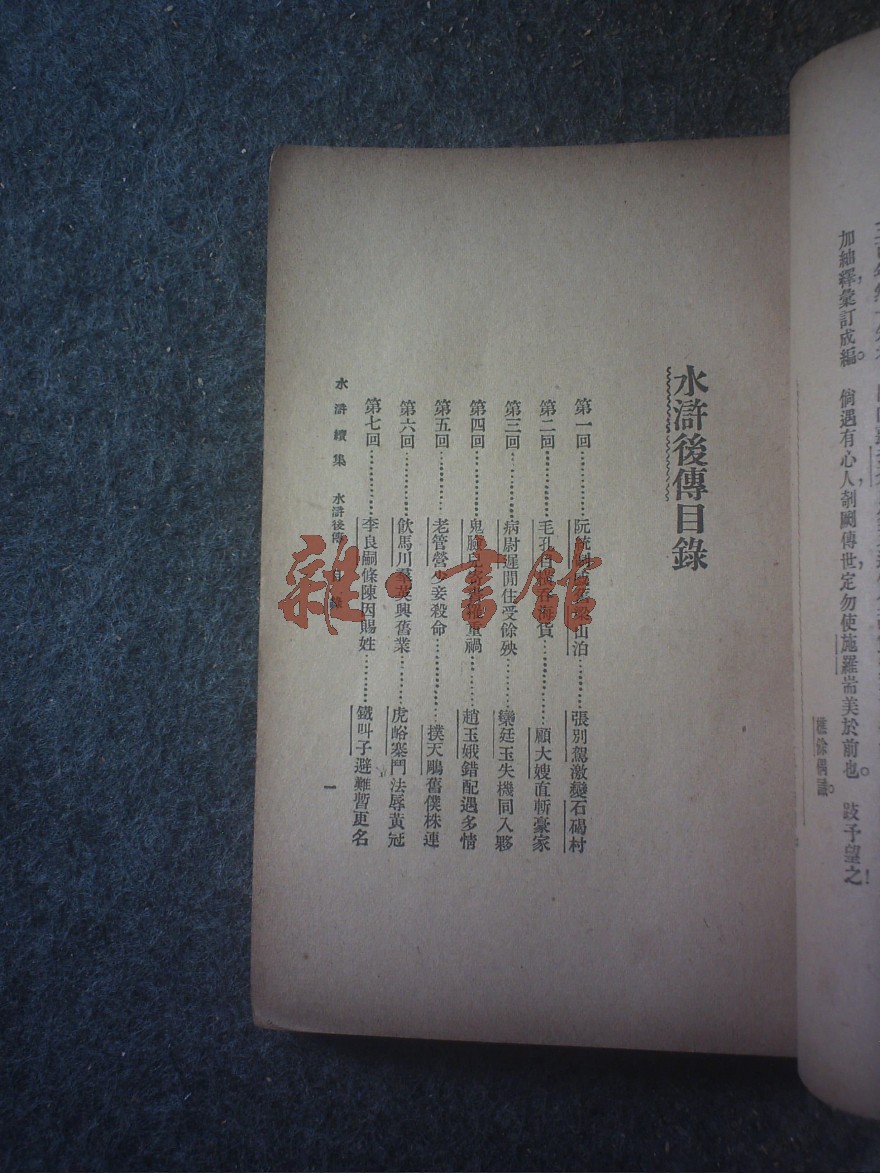 加紬繹，彙訂成編。倘遇有心人剞劂傳世，定勿使施羅耑美於前也。跂予望之！
樵餘偶識。
水滸後傳目錄
第一回…………阮統制 梁山泊………張別駕激變石碣村
第二回…………毛孔目 海貨…………顧大嫂直斬豪家
第三回…………病尉遲閒住受餘殃………欒廷玉失機同入夥
第四回…………鬼臉兒 重禍…………趙玉娥錯配遇多情
第五回…………老管營少妾殺命…………撲天鵰舊僕株連
第六回…………飲馬川羣英興舊業………虎峪寨鬥法辱黃冠
第七回…………李良嗣條陳因賜姓………鐵叫子避難暫更名
水滸續集 水滸後傳 目錄
一
雜·書館